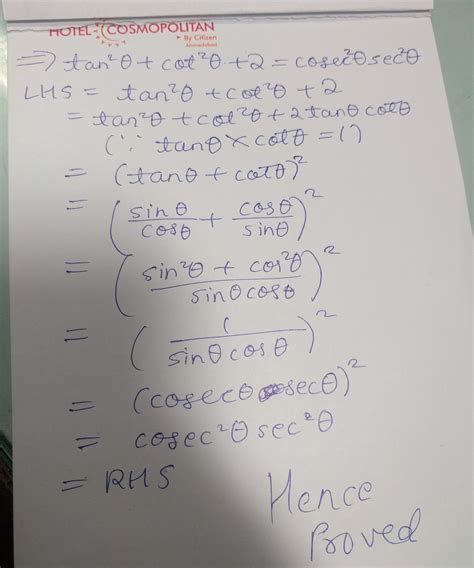 HOTEL COSMOPOLITAN
By Citizen
Ahmedabad
⇒ tan²θ + cot²θ + 2 = cosec²θ sec²θ
LHS = tan²θ + cot²θ + 2
= tan²θ + cot²θ + 2tanθ cotθ
(∵ tanθ × cotθ = 1)
= (tanθ + cotθ)²
= (sinθ/cosθ + cosθ/sinθ)²
= (sin²θ + cos²θ / sinθ cosθ)²
= (1 / sinθ cosθ)²
= (cosecθ secθ)²
= cosec²θ sec²θ
= RHS
Hence
Proved